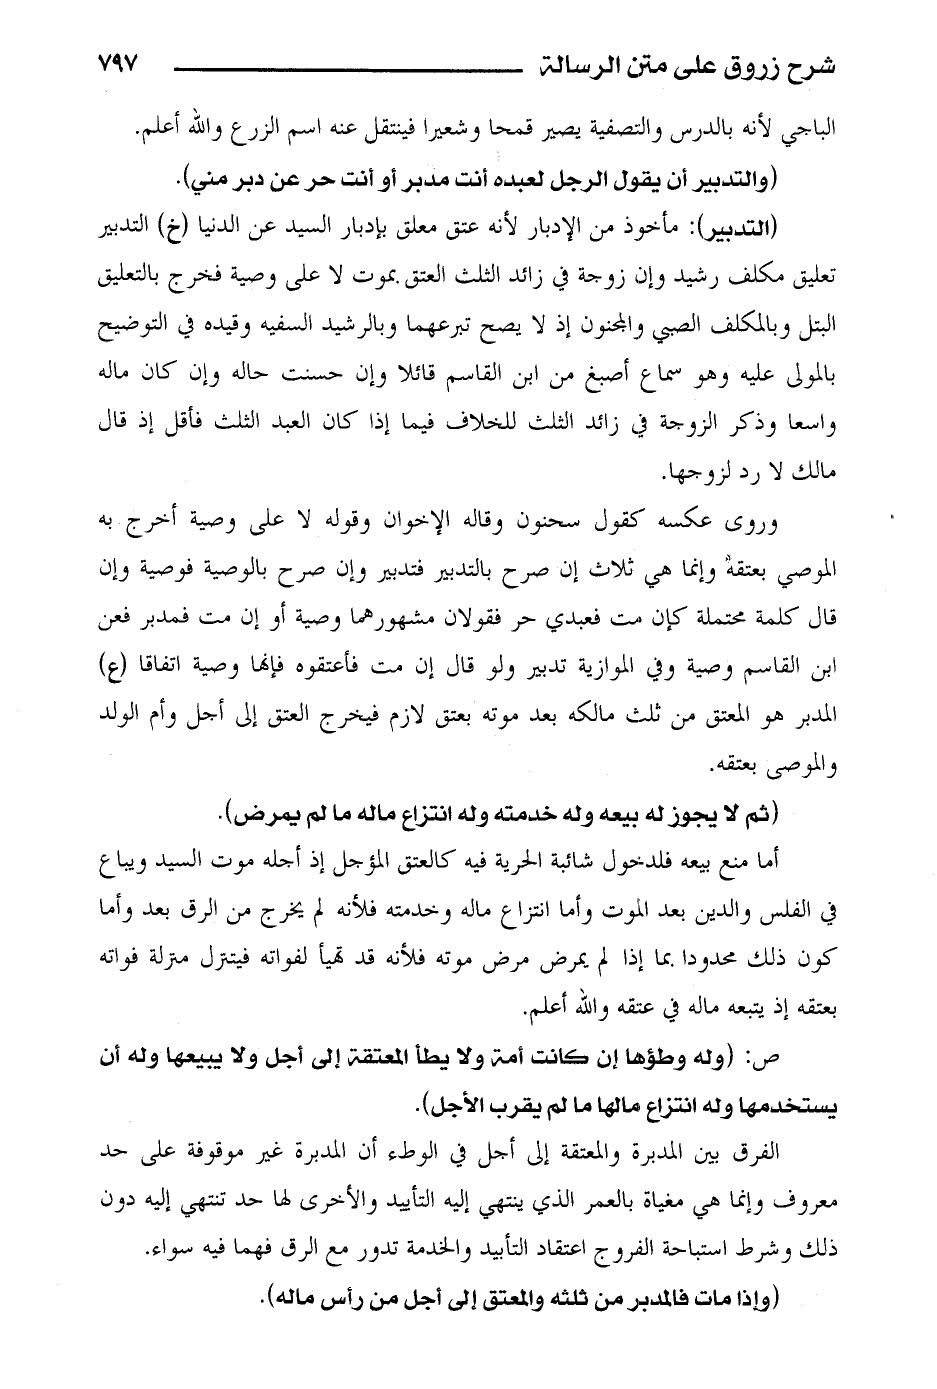 شرح زروق على متن الرسالة ٧٩٧
الباجي لأنه بالدرس والتصفية يصير قمحا وشعيرا فينتقل عنه اسم الزرع والله أعلم.
(والتدبير أن يقول الرجل لعبده أنت مدبر أو أنت حر عن دبر مني).
(التدبير): مأخوذ من الإدبار لأنه عتق معلق بإدبار السيد عن الدنيا (خ) التدبير
تعليق مكلف رشيد وإن زوجة في زائد الثلث العتق بموت لا على وصية فخرج بالتعليق
البتل وبالمكلف الصبي والمجنون إذ لا يصح تبرعهما وبالرشيد السفيه وقيده في التوضيح
بالمولى عليه وهو سماع أصبغ من ابن القاسم قائلا وإن حسنت حاله وإن كان ماله
واسعا وذكر الزوجة في زائد الثلث للخلاف فيما إذا كان العبد الثلث فأقل إذ قال
مالك لا رد لزوجها.
وروى عكسه كقول سحنون وقاله الإخوان وقوله لا على وصية أخرج به
الموصي بعتقه وإنما هي ثلاث إن صرح بالتدبير فتدبير وإن صرح بالوصية فوصية وإن
قال كلمة محتملة كإن مت فعبدي حر فقولان مشهورهما وصية أو إن مت فمدبر فعن
ابن القاسم وصية وفي الموازية تدبير ولو قال إن مت فأعتقوه فإنها وصية اتفاقا (ع)
المدبر هو المعتق من ثلث مالكه بعد موته بعتق لازم فيخرج العتق إلى أجل وأم الولد
والموصى بعتقه.
(ثم لا يجوز له بيعه وله خدمته وله انتزاع ماله ما لم يمرض).
أما منع بيعه فلدخول شائبة الحرية فيه كالعتق المؤجل إذ أجله موت السيد ويباع
في الفلس والدين بعد الموت وأما انتزاع ماله وخدمته فلأنه لم يخرج من الرق بعد وأما
كون ذلك محدودا بما إذا لم يمرض مرض موته فلأنه قد تهيأ لفواته فيتنزل منزلة فواته
بعتقه إذ يتبعه ماله في عتقه والله أعلم.
ص: (وله وطؤها إن كانت أمة ولا يطأ المعتقة إلى أجل ولا يبيعها وله أن
يستخدمها وله انتزاع مالها ما لم يقرب الأجل).
الفرق بين المدبرة والمعتقة إلى أجل في الوطء أن المدبرة غير موقوفة على حد
معروف وإنما هي مغياة بالعمر الذي ينتهي إليه التأبيد والأخرى لها حد تنتهي إليه دون
ذلك وشرط استباحة الفروج اعتقاد التأبيد والخدمة تدور مع الرق فهما فيه سواء.
(وإذا مات فالمدبر من ثلثه والمعتق إلى أجل من رأس ماله).